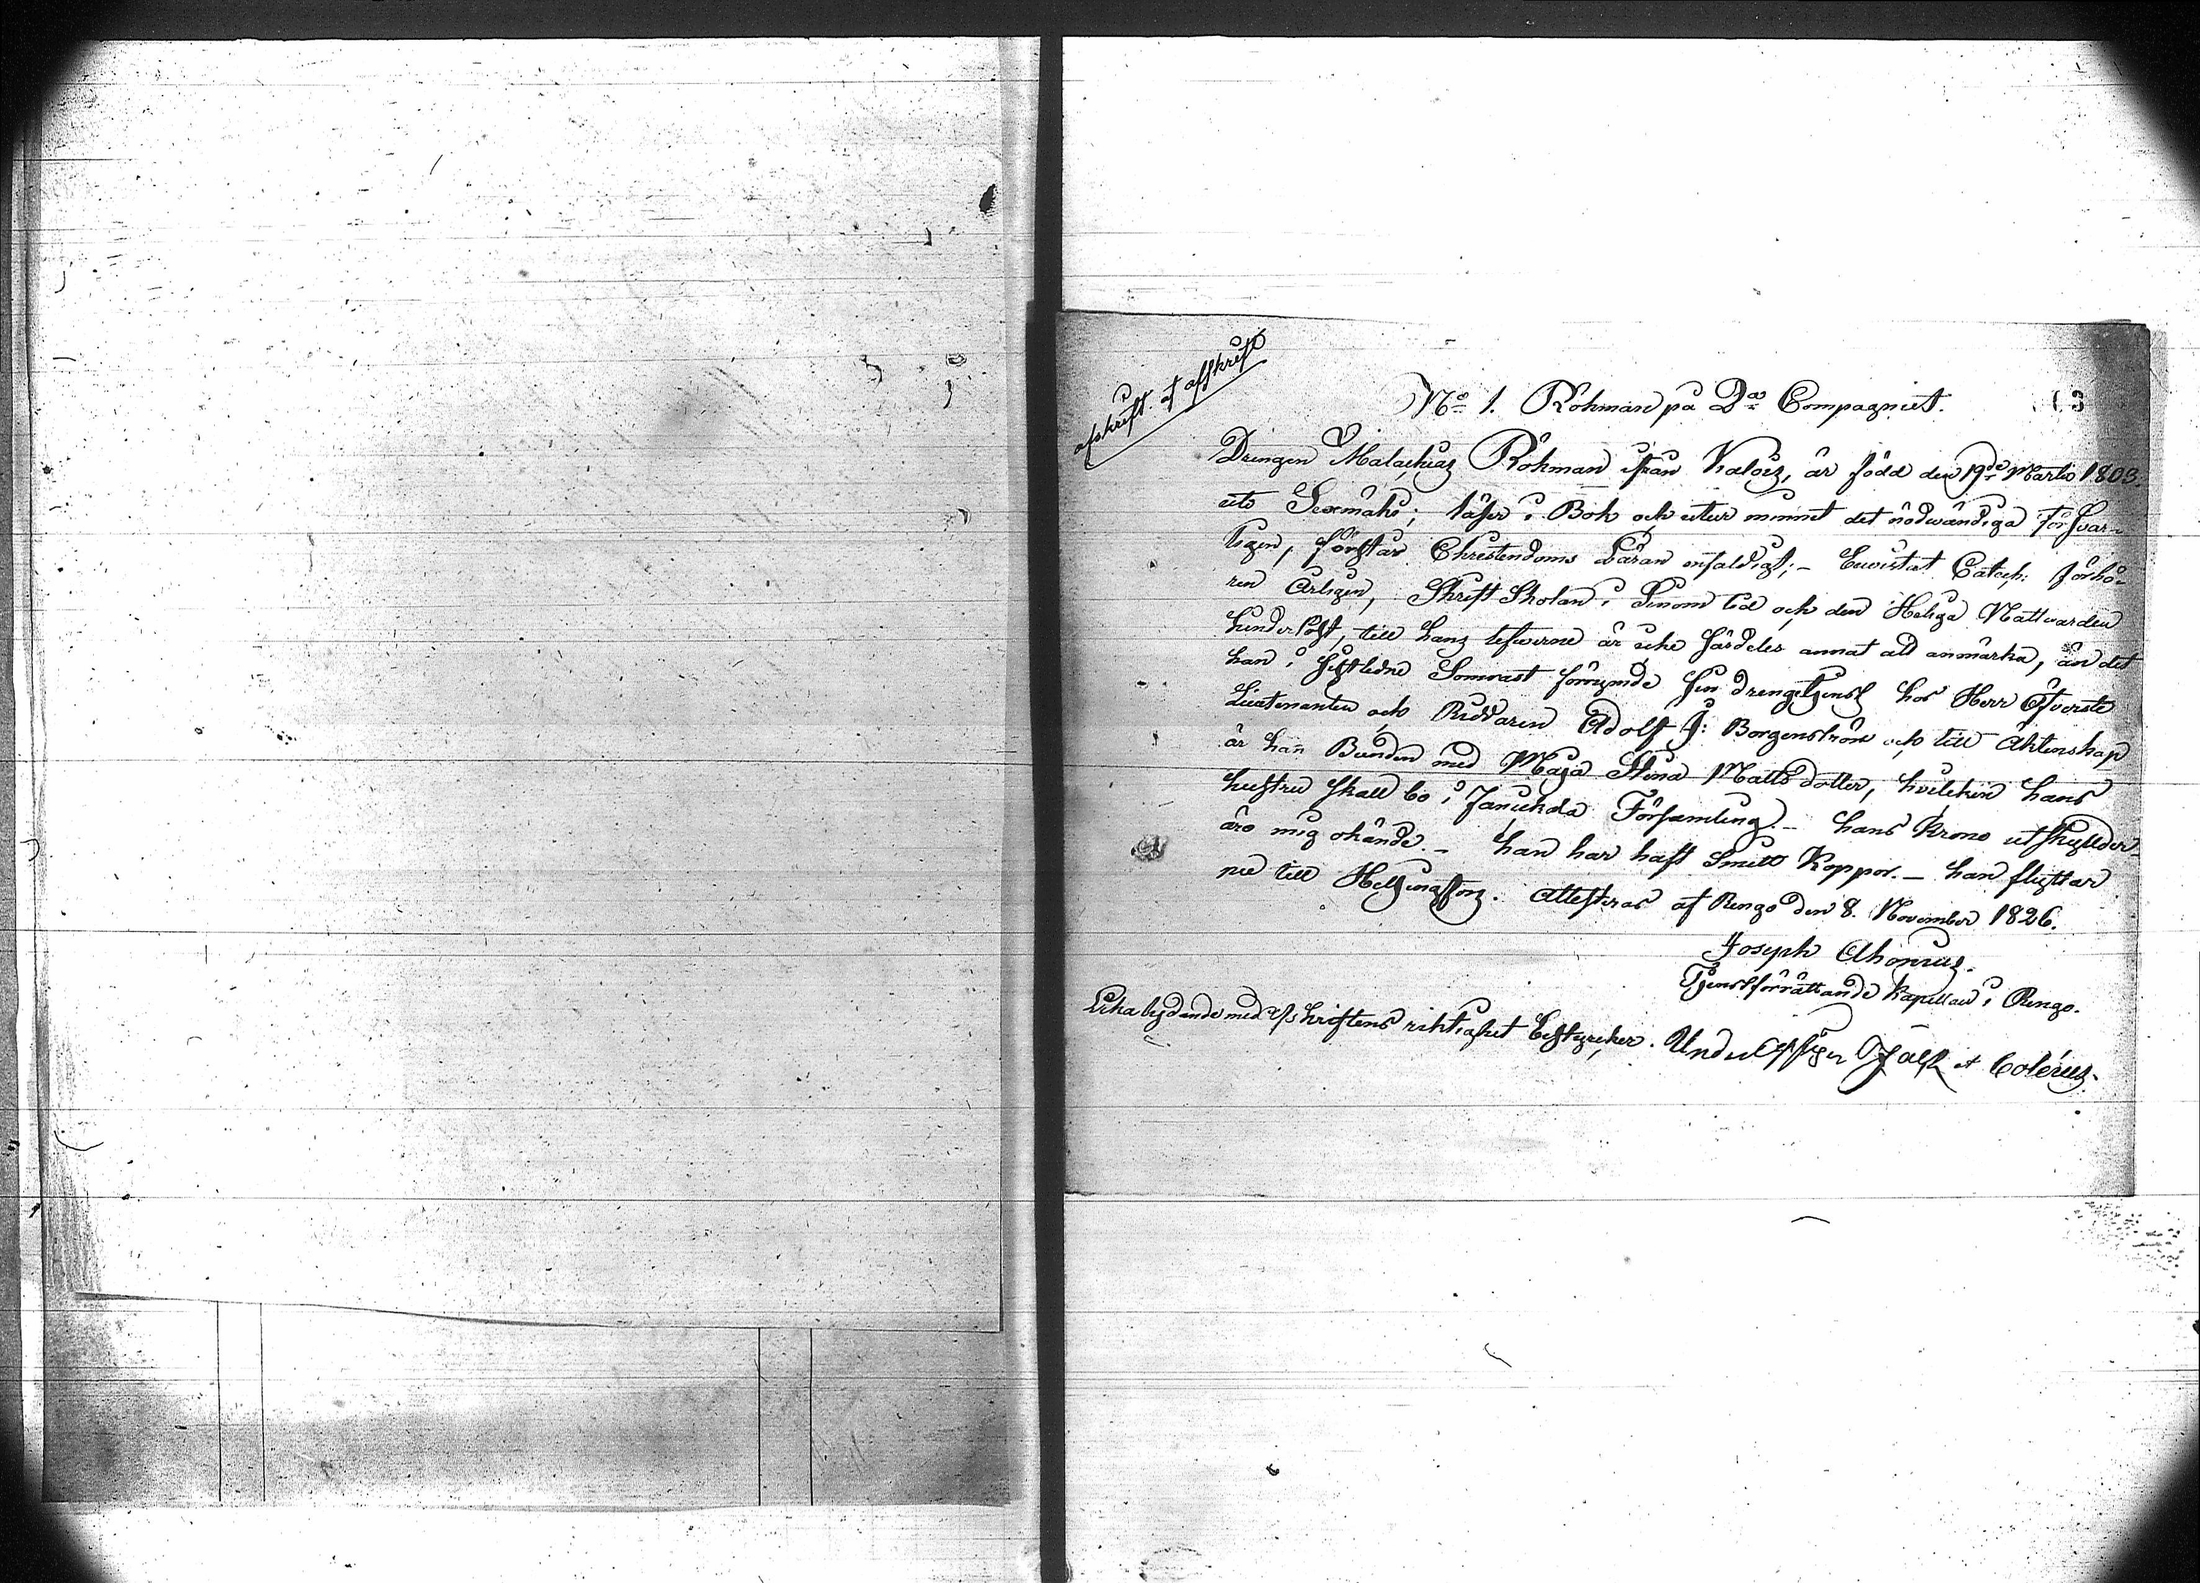 afskrift. af afskrift
No 1. Röhman på 2a Compagniet.
63
Drengen Malachias Röhman ifrån Kalois, är född den 19de Martii 1803.
uti Sexmäki; läser i Bok och utur minnet det nödwändiga Försvar-
ligen, förstår Christendoms Läran enfaldigt; - Bewistat Catech: förhö-
ren Årligen, Skrift Skolan i Sinom tid och den Heliga Nattvarden
hinderlöst, till hans lefwerne är icke särdeles annat att anmärka, än det
han i sistledne Somrast förrymde sin drengtjenst hos Herr Öfverste
Lieutenanten och Riddaren Adolf J: Borgenström och till Äktenskap
är han Bunden med Maja Stina Matts dotter, hvilcken hans
hustru skall bo i Janackala Församling. - hans Krono utskyllder
äro mig okände. - han har haft Smitt Koppor. - han flyttar
nu till Helsingfors. Attesteras af Rengo den 8. November 1826.
Joseph Ahonius.
Tjenstförrättande Kapellan i Rengo.
Lika lydande med afskriftens riktighet bestyrcker. Underofficer